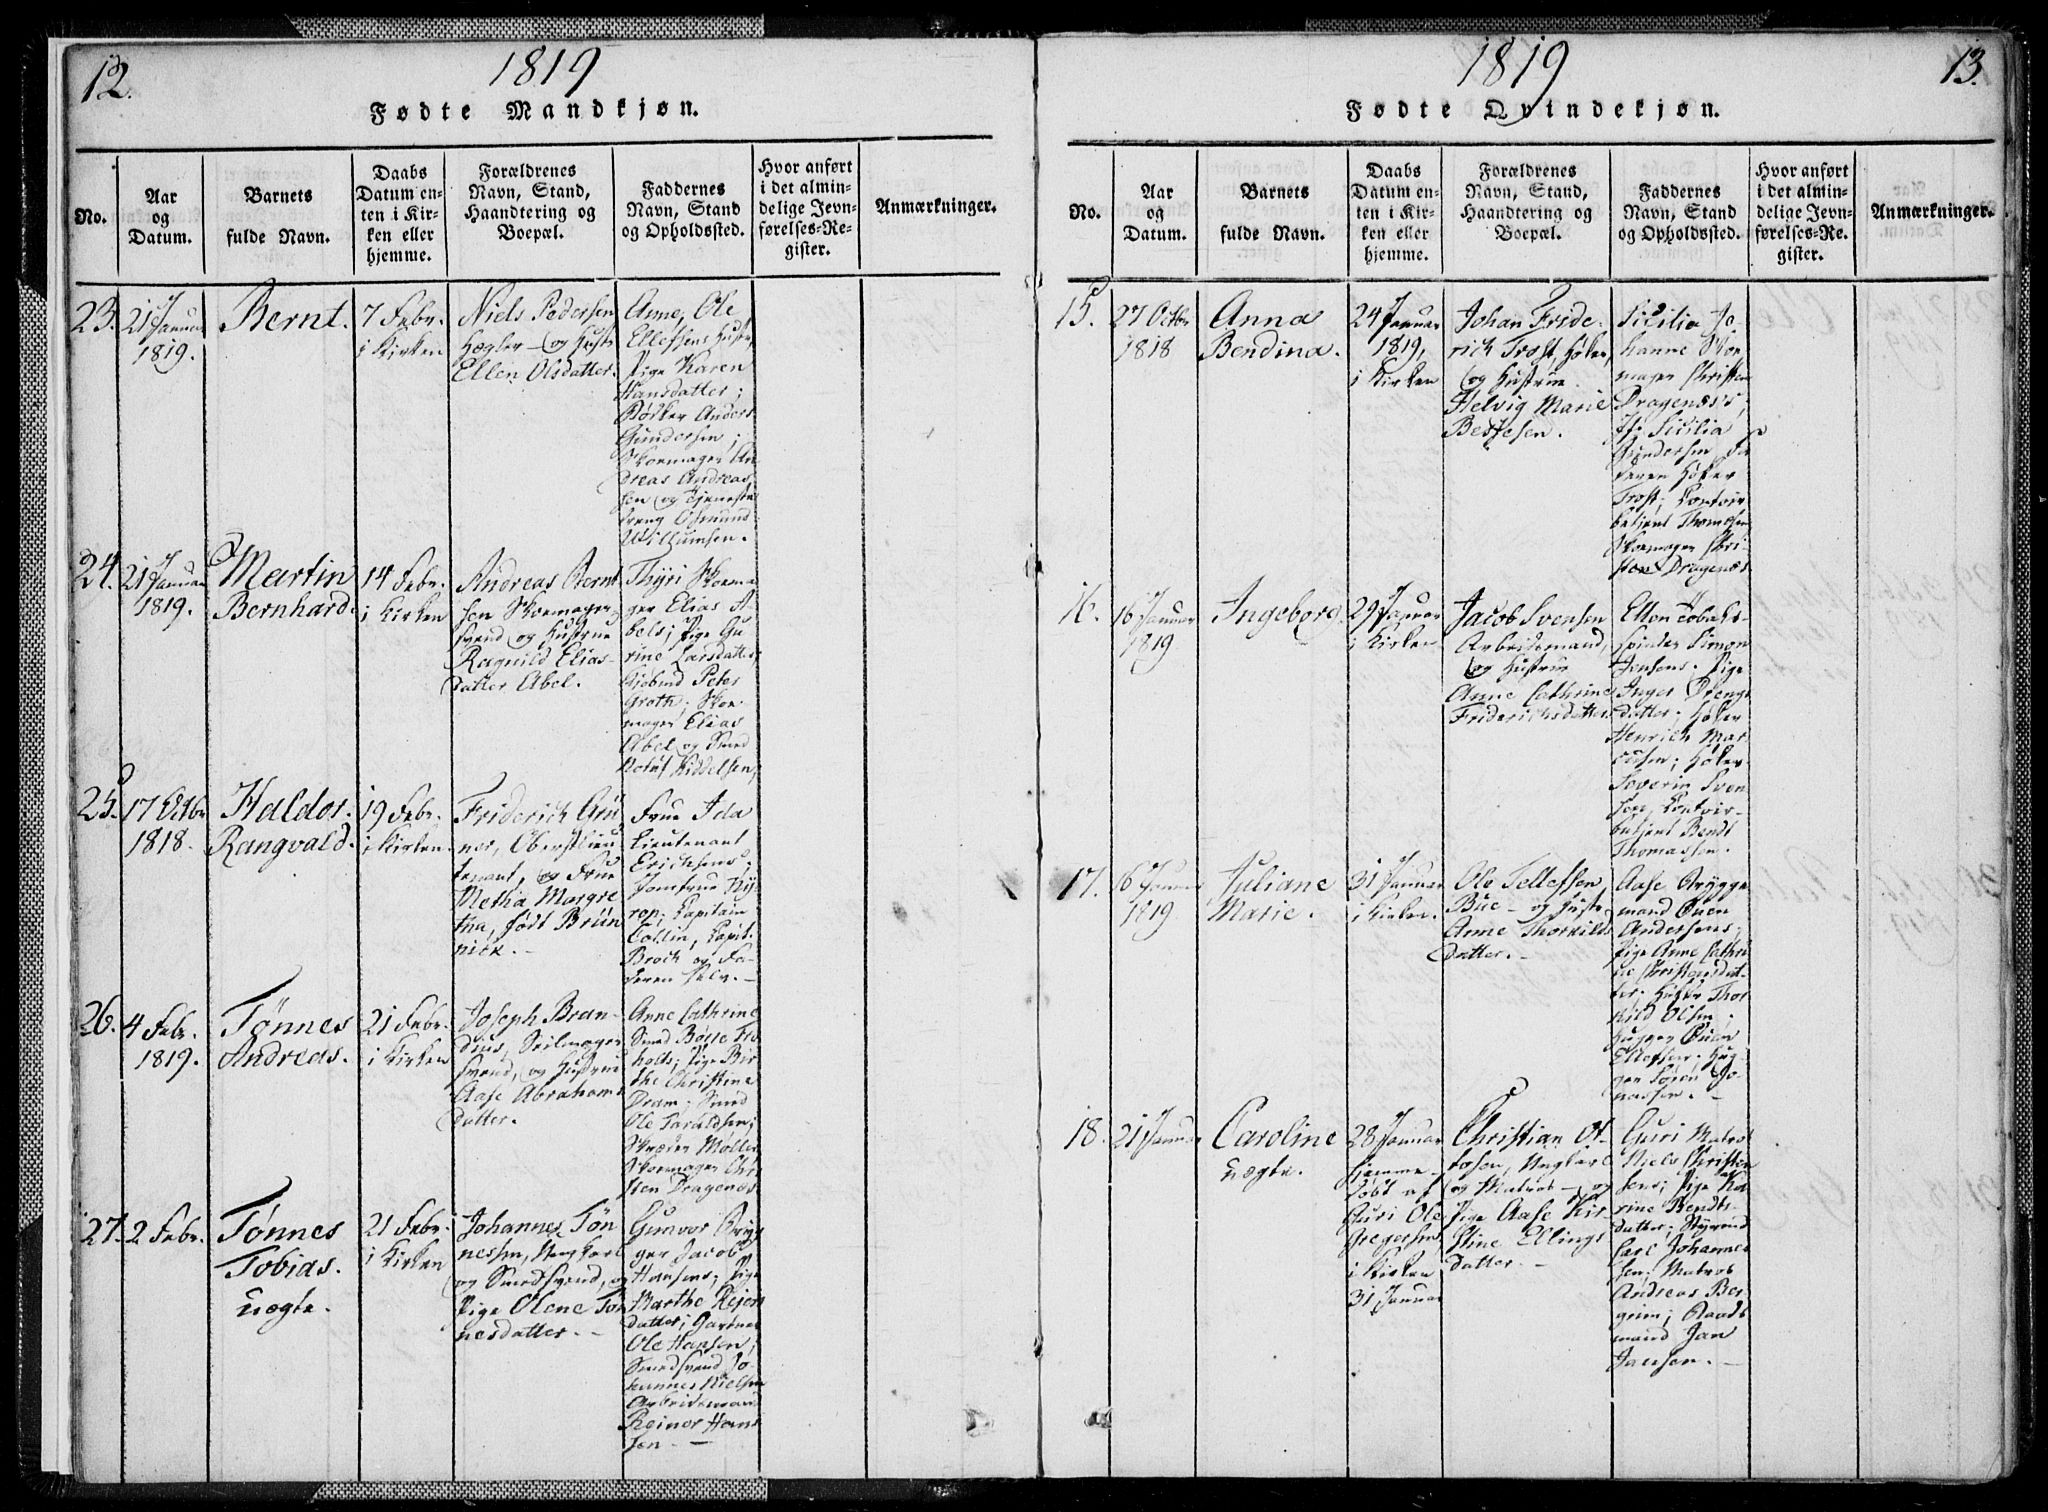 12.
1819
Fødte Mandkjøn.
No.
Aar
og
Datum.
Barnets
fulde Navn.
Daabs
Datum en-
ten i Kir-
ken eller
hjemme.
Forældrenes
Navn, Stand,
Haandtering og
Boepæl.
Faddernes
Navn, Stand
og Opholdssted.
Hvor anført
i det almin-
delige Jevn-
førelses-Re-
gister.
Anmærkninger.
23.
21 Januar
1819.
Bernt.
7 Febr.
i Kirken
Niels Pedersen
Hægler og Hustr
Ellen Olsdatter.
Anne, Ole
Ellefsens Hustr,
Pige Karen
Hansdatter;
Bødker Anders
Gundersen;
Skomager An
dreas Andreas
sen og Tjeneste
dreng Osmund
Willumsen.
24.
21 Januar
1819.
Martin
Bernhard.
14 Febr.
i Kirken
Andreas Bernt
sen Skomager
svend og Hustrue
Ragnild Elias-
datter Abel.
Thyri Skoma
ger Elias A-
bels; Pige Gu
rine Larsdatter,
Peter
Groth; Skoe-
mager Elias
Abel og Smed
Kiddelsen,
25.
17 Octbr
1818.
Haldor
Rangvald.
19 Febr.
i Kirken.
Friderich Grü
ner, Oberstlieu
tenant, og Frue
Metha Margre
tha, født Brün
nick.
Frue Ida
Lieutenant
Erichsens;
Jomfrue Ny-
rop; Capitain
Collin, Capit.
Broch og Fa-
deren selv.
26.
4 Febr.
1819.
Tønnes
Andreas.
21 Febr.
i Kirken
Joseph Bran-
dius, Seilmager
svend, og Hustrue
Aase Abrahams
datter.
Anne Cathrine
Smed
holts; Pige Bir
the Christine
Dram; Smed
Ole Taraldsen;
Skræder Møller
Skomager Chri
sten Dragenæs
27.
2 Febr.
Tønnes
Tobias.
uægte.
21 Febr.
i Kirken
Johannes Tøn
nessen, Ungkarl
og Smedsvend, og
Pige Olene Tøn
nesdatter.
Gunvor Bryg
ger Jacob
Hansens; Pige
Marthe Reiers
datter; Gartner
Ole Hansen;
Smedsvend Jo-
hannes Nielsen
Arbeidsmand
Reiner Hans
sen
1819
13.
Fødte Qvindekjøn.
No.
Aar
og
Datum.
Barnets
fulde Navn.
Daabs
Datum en-
ten i Kir-
ken eller
hjemme.
Forældrenes
Navn, Stand,
Haandtering og
Boepæl.
Faddernes
Navn, Stand
og Opholdssted.
Hvor anført
i det almin-
delige Jevn-
førelses-Re-
gister.
Anmærkninger.
15.
27 Octbr
1818
Anna
Bendina.
24 Januar
1819,
i Kirken
Johan Fride-
rich Trost, Høker,
og Hustrue
Helvig Marie
Bessesen.
Sicilia Jo
hanne Skoe
mager Christen
Dragenæs's,
Jf. Sicilia
Gundersen Fa
deren Høker
Trost; Contoir
betjent Thomesen
Skomager Chri-
sten Dragenæs
16.
16 Januar
1819
Ingeborg.
29 Januar
i Kirken
Jacob Svensen
Arbeidsmand,
og Hustrue
Anne Cathrine
Friderichsdatter
Ellen Tobaks-
spinder Simon
Jensens. Pige
Inger Drengs
datter; Høker
Henrich Mar
cussen; Høker
Severin Sven
sen, Contoir-
betjent Bendt
Thomassen.
17.
16 Januar
1819
Juliane
Marie.
31 Januar
i Kirken.
Ole Tellefsen
Bue og Hustr
Anne Thorkilds
datter.
Aase Brygge
mand Ouen
Andersens;
Pige Anne Cathri
ne Christensdat
ter. Thor
kild Olsen.
Hugger Ouen
Ellefsen. Hug-
ger Søren Jo
nassen.
18.
21 Januar
Caroline
uægte.
28 Januar
hjemme
døbt af
Guri Ole
Gregersens
i Kirken
31 Januar
Christian Ol-
tosen, Ungkarl
og Matros og
Pige Aase Kir-
stine Ellings
datter.
Guri Matros
Niels Christen
sens; Pige Ka
rine Bendts-
datter; Styrmd
Carl Johanne
sen; Matros
Andreas Ber
geim; Raads
mand Jan
Jansen.